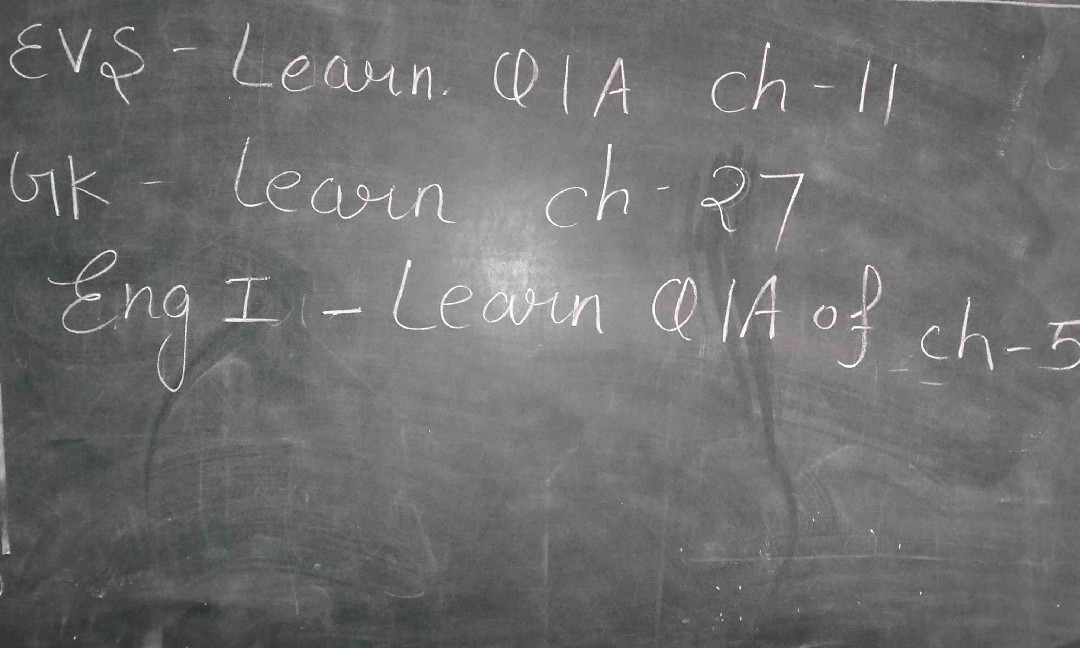 EVS - Learn. Q/A ch-11
GK - Learn ch-27
Eng I - Learn Q/A of ch-5